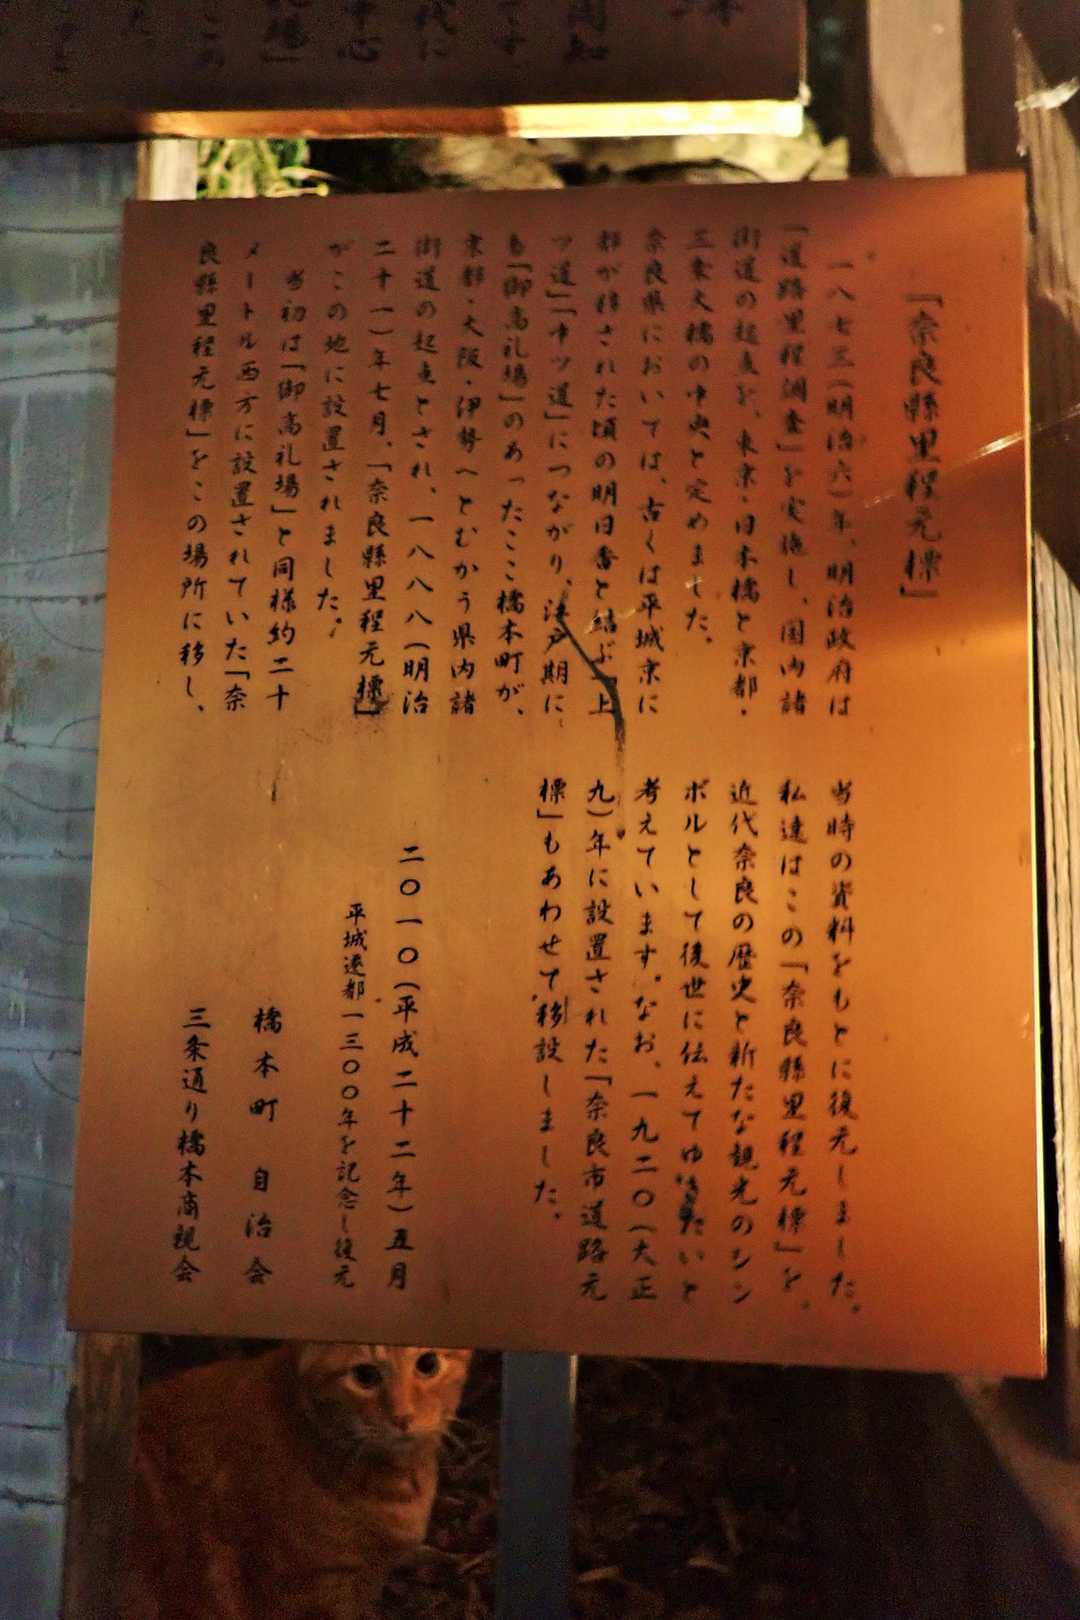 「奈良縣里程元標」
一八七三(明治六)年、明治政府は
「道路里程調査」を実施し、国内諸
街道の起点を、東京・日本橋と京都・
三条大橋の中央と定めました。
奈良県においては、古くは平城京に
都が移された頃の明日香と結ぶ「上
ツ道」「中ツ道」につながり、江戸期に
も「御高札場」のあったここ橋本町が、
京都・大阪・伊勢へとむかう県内諸
街道の起点とされ、一八八八(明治
二十一)年七月、「奈良縣里程元標」
がこの地に設置されました。
当初は「御高札場」と同様約二十
メートル西方に設置されていた「奈
良縣里程元標」をこの場所に移し、
当時の資料をもとに復元しました。
私達はこの「奈良縣里程元標」を、
近代奈良の歴史と新たな観光のシン
ボルとして後世に伝えてゆきたいと
考えています。なお、一九二〇(大正
九)年に設置された「奈良市道路元
標」もあわせて移設しました。
二〇一〇(平成二十二年)五月
平城遷都一三〇〇年を記念し復元
橋本町 自治会
三条通り橋本商親会